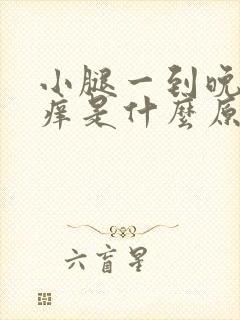 小腿一到晚
痒是什麼原
六盲星